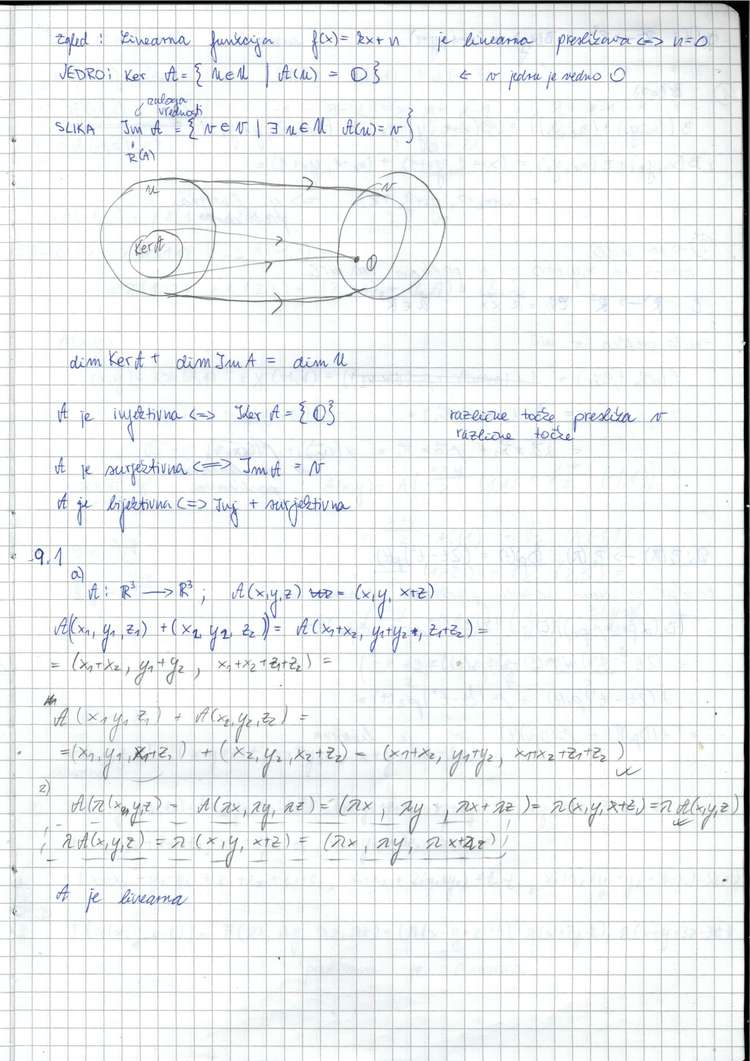 Zgled: Linearna funkcija f(x) = kx+n je linearna preslikava <=> n=0
JEDRO: Ker A = { u∈U | A(u) = 0 } ← v jedru je vedno 0
zaloga
vrednosti
SLIKA Im A = { v∈V | ∃ u∈U A(u) = v }
R(A)
U V
Ker A 0
dim Ker A + dim Im A = dim U
A je injektivna <=> Ker A = {0} različne točke preslika v
različne točke
A je surjektivna <=> Im A = V
A je bijektivna <=> Inj + surjektivna
9.1
a)
A: ℝ³ → ℝ³; A(x,y,z) = (x,y, x+z)
A((x1, y1, z1) + (x2, y2, z2)) = A(x1+x2, y1+y2, z1+z2) =
= (x1+x2, y1+y2, x1+x2+z1+z2) =
A(x1 y1 z1) + A(x2, y2, z2) =
= (x1, y1, x1+z1) + (x2, y2, x2+z2) = (x1+x2, y1+y2, x1+x2+z1+z2) ✓
2)
A(λ(x,y,z) = A(λx, λy, λz) = (λx, λy, λx+λz) = λ(x,y,x+z) = λA(x,y,z)
λA(x,y,z) = λ(x,y, x+z) = (λx, λy, λx+λz)
A je linearna